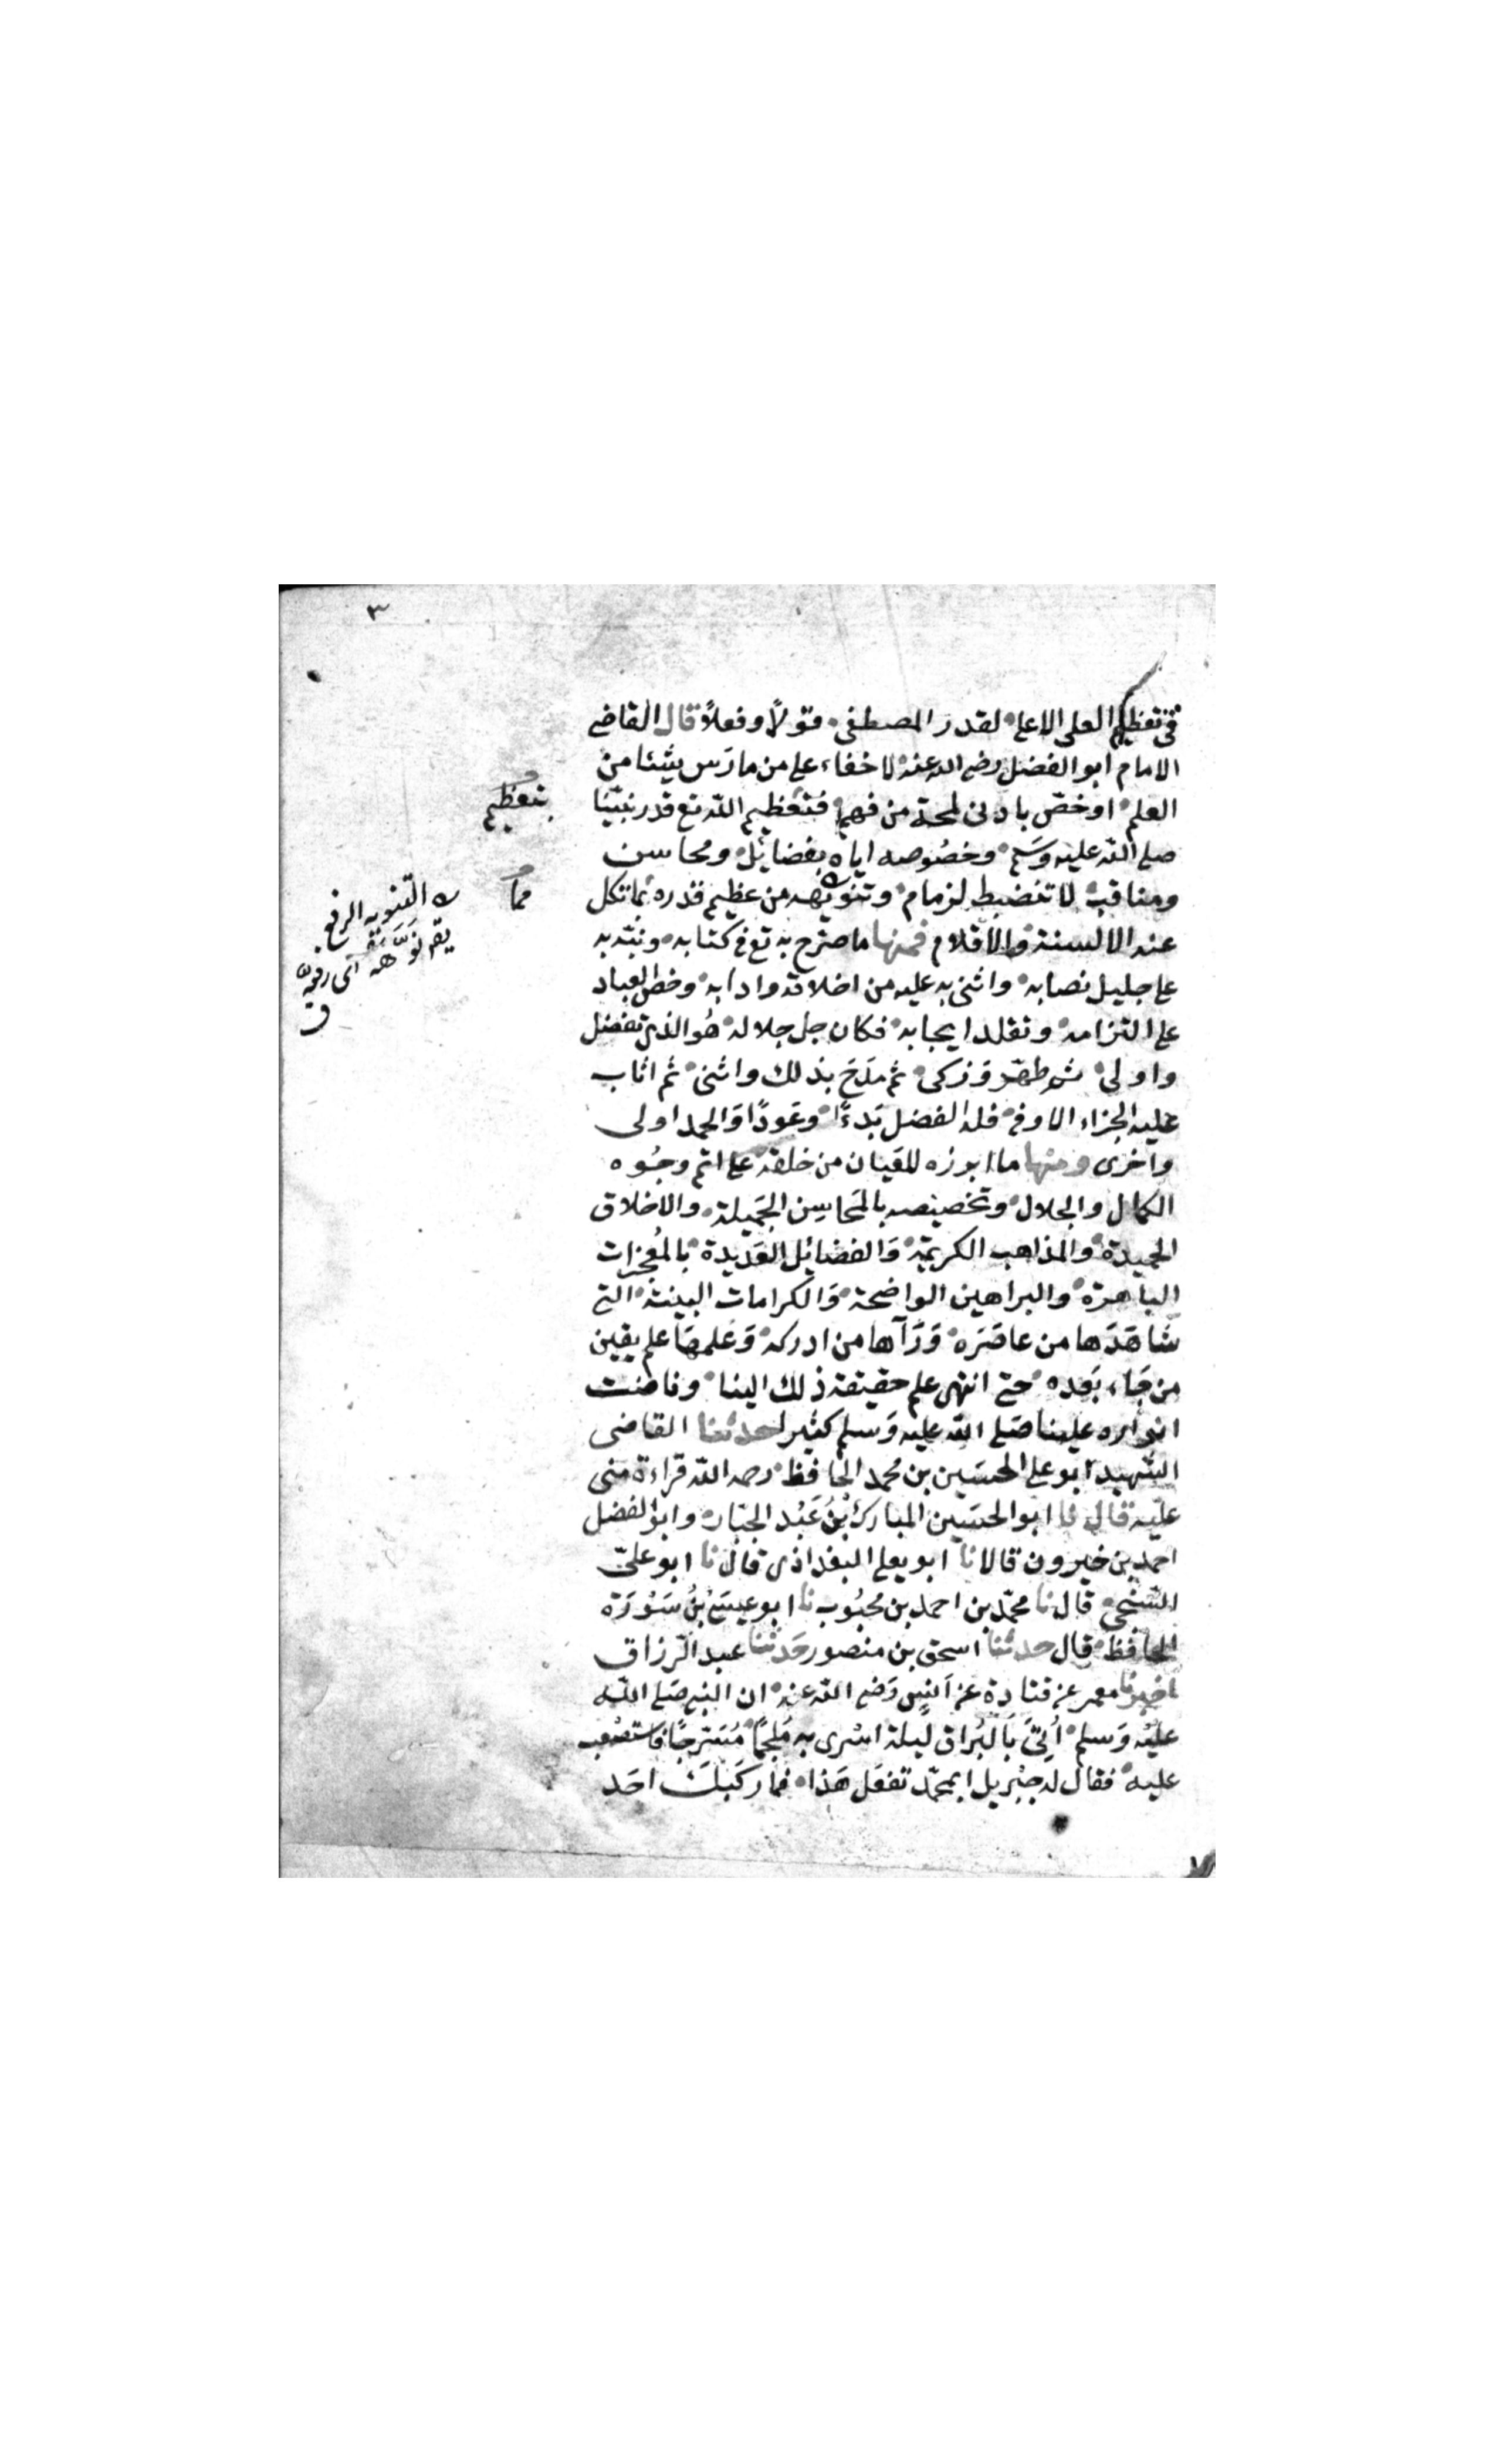 ٣
في تعظيم العلي الاعلى لقدر المصطفى قولاً وفعلاً قال القاضي
الامام ابو الفضل رضي الله عنه لا خفاء على من مارس شيئا من
العلم او خصّ بادنى لمحة من فهم فتعظيم الله تع قدر نبيّنا
بتعظيم
صلى الله عليه وسلم وخصوصه اياه بفضائل ومحاسن
ومناقب لا تنضبط لزمام وتنويهه من عظيم قدره بما تكل
مما
عند الالسنة والاقلام فمنها ما صرّح به تع في كتابه ونبّه به
على جليل نصابه واثنى به عليه من اخلاقه وادابه وحضّ العباد
على التزامه وتقلد ايجابه فكان جل جلاله هُو الذي تفضل
واولى ثم طهّر وزكى ثم مدَح بذلك واثنى ثم اثاب
عليه الجزاء الاوفى فله الفضل بَدءًا وعَودًا وَالحمد اولى
واخرى ومنها ما ابرزه للعَيان من خلقه على اتم وجُوه
الكمال والجلال وتخصيصه بالمَحاسِن الجَميلة والاخلاق
الحميدة والمذاهب الكريمة وَالفضائل العَديدة بالمُعجزات
الباهرة والبراهين الواضحة وَالكرامات البينة التي
شَاهَدَها من عاصَرَه وَرَآها من ادركه وَعَلمهَا علم يقين
من جَاء بَعده حتى انتهى علم حقيقة ذلك الينا وفاضت
انواره علينا صَلى الله عليه وَسلم كثيرا حدثنا القاضى
الشهيد ابو على الحسَين بن محمد الحافظ رحمه الله قراءة منى
عليه قال نا ابو الحسَين المبارك بْنُ عَبْد الجبّار وابو الفضل
احمد بن خيرون قالا نا ابو يعلى البغداذى قال نا ابو علىّ
السّنجى قال نا محمّد بن احمد بن محبُوب نا ابو عيسَى بْنُ سَوْرَة
الحافظ قال حدثنا اسحق بن منصور حَدثنا عبد الرّزاق
اخبرنا معمر عن قتادة عن اَنسٍ رَضي الله عنه ان النبي صَلى الله
عليْه وَسلم أُتِيَ بَالبُراق ليلة اسْرى به مُلجَمًا مُسَرجًا فاستصْعب
عليه فقال له جبْريل ابمحمّد تفعَل هَذا فما ركَبكَ احَد
التنويه الرفع
يقم نَوّهَهُ اى رفعه
ق